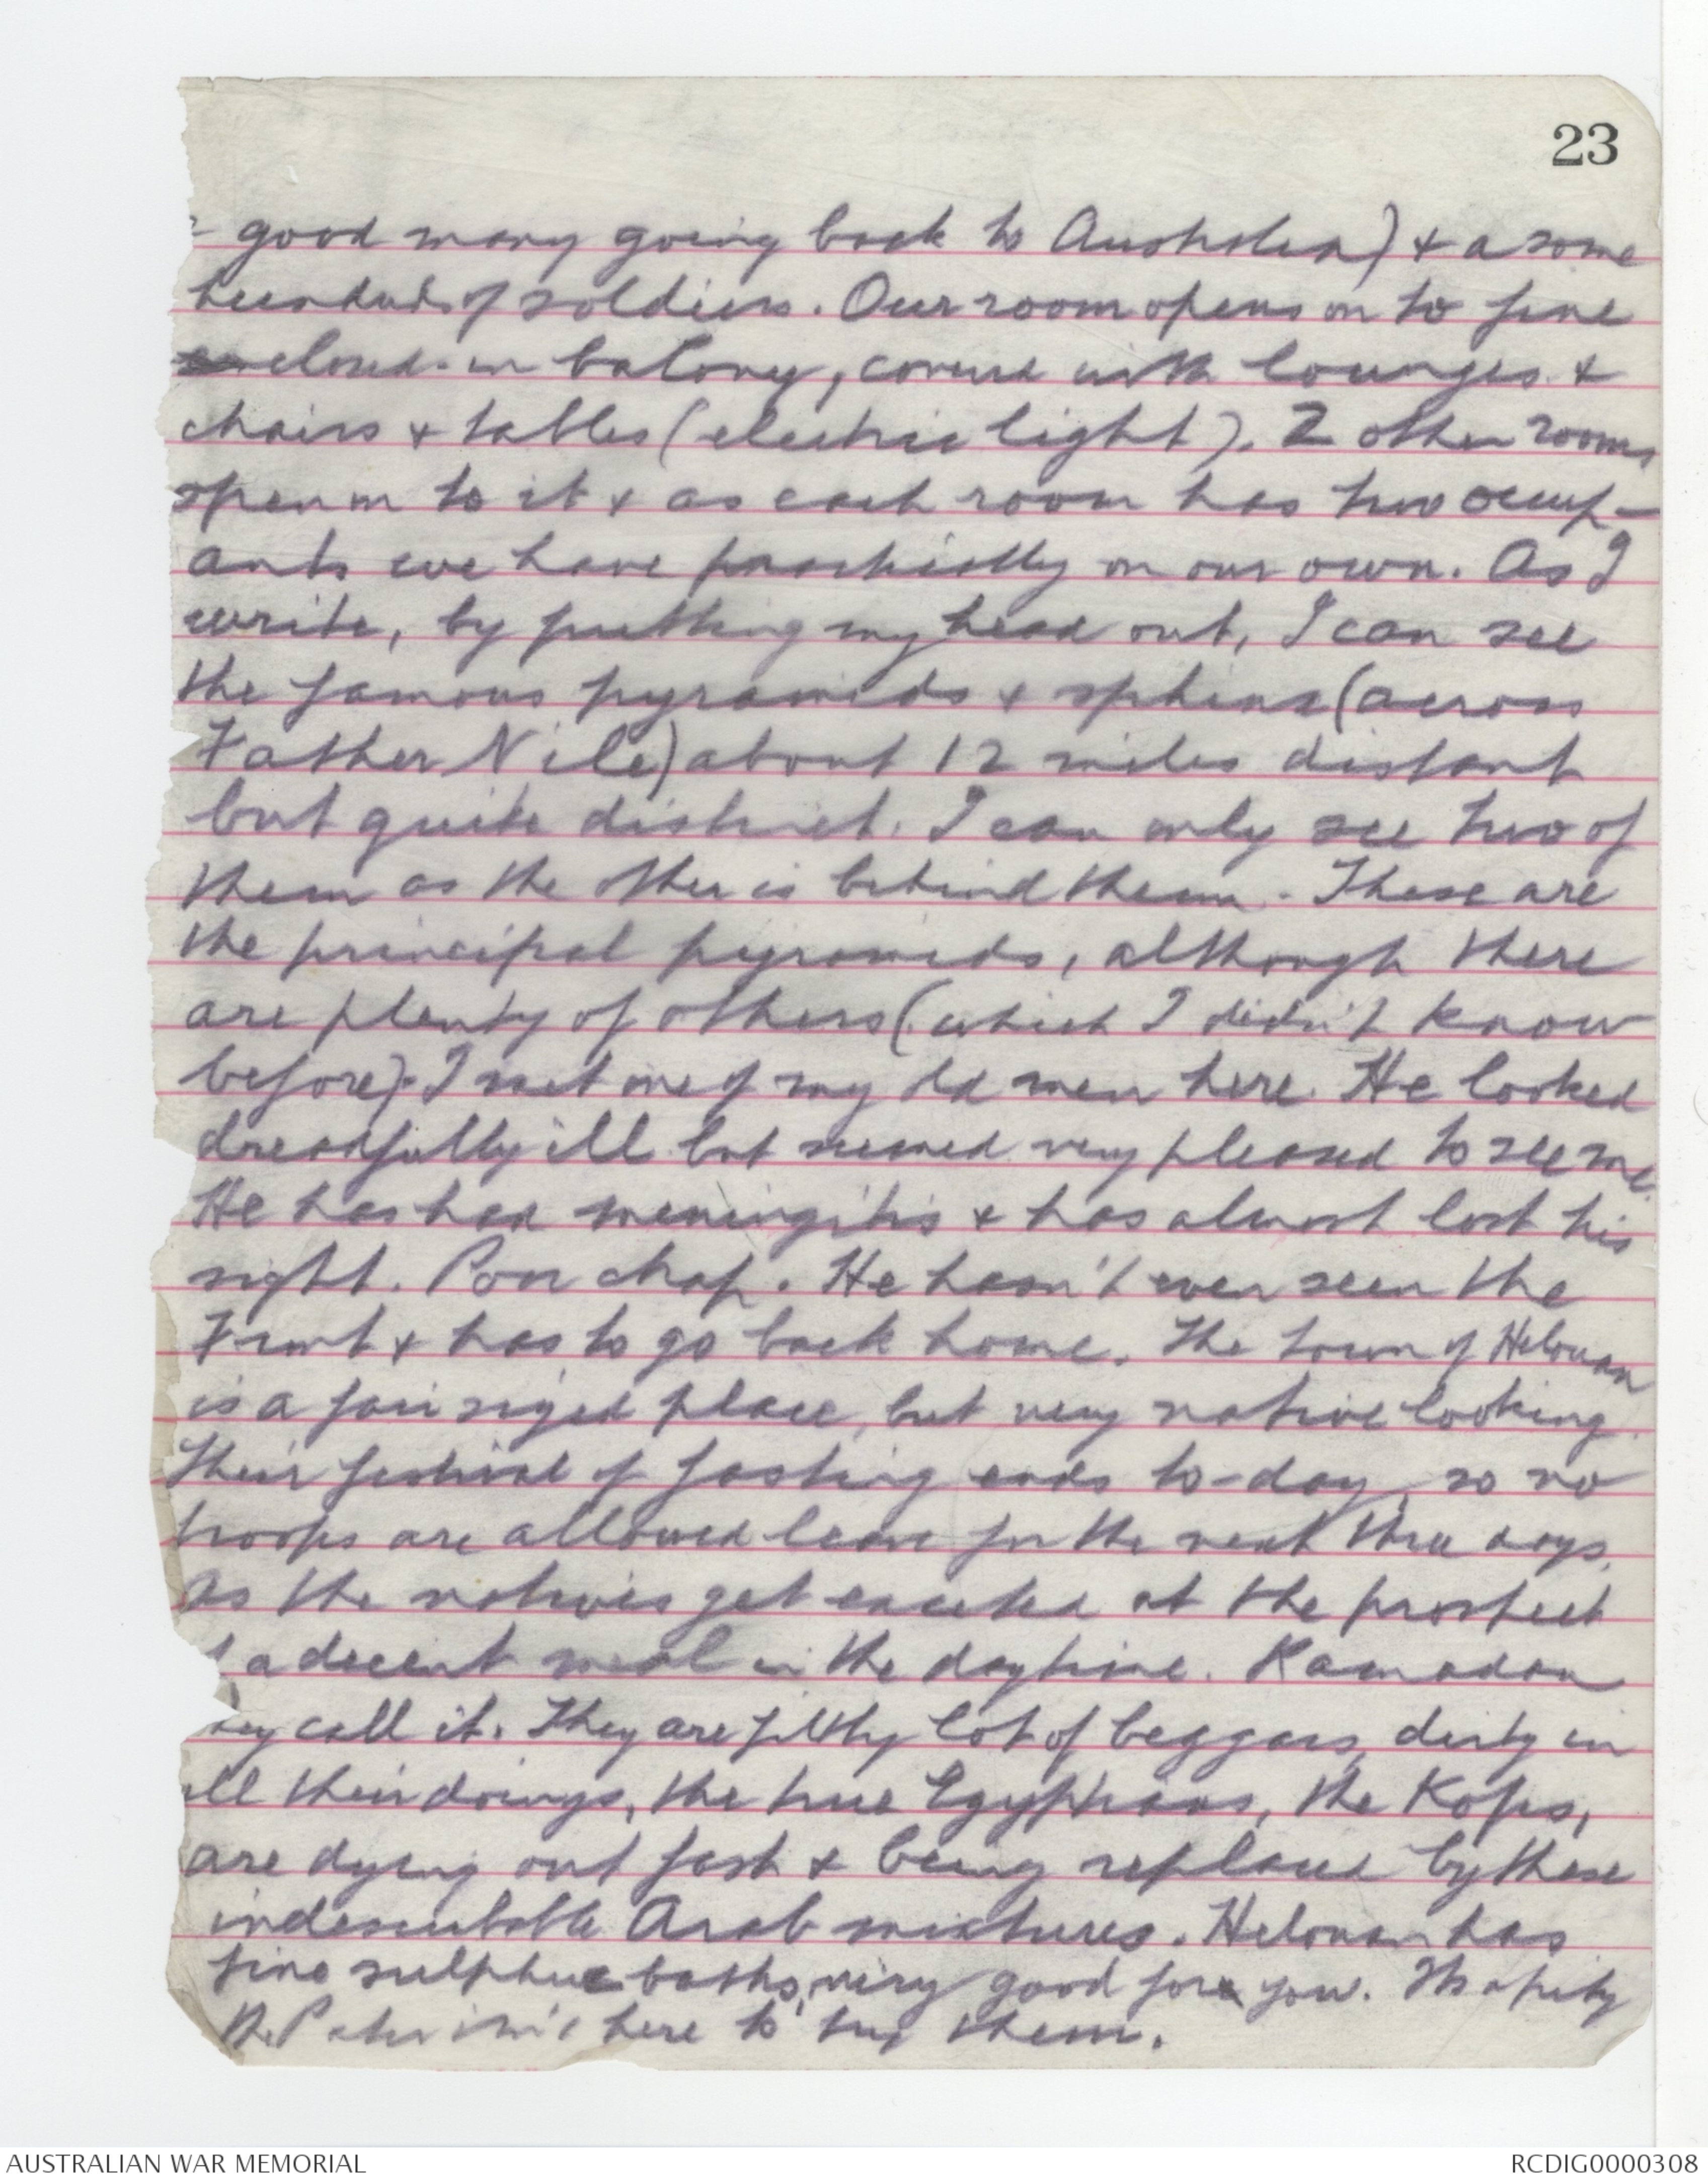 23
good many going back to Australia) & a some
hundreds of soldiers. Our room opens on to fine
closed-in balcony, covered with lounges &
chairs & tables (electric light). 2 other rooms
open on to it & as each room has two occup-
ants we have practically on our own. As I
write, by putting my head out, I can see
the famous pyramids & sphinx (across
Father Nile) about 12 miles distant
but quite distinct. I can only see two of
them as the other is behind them. These are
the principal pyramids, although there
are plenty of others (which I didn't know
before). I met one of my old men here. He looked
dreadfully ill but seemed very pleased to see me.
He has had meningitis & has almost lost his
sight. Poor chap. He hasn't even seen the
Front & has to go back home. The town of Helouan
is a fair sized place, but very native looking.
Their festival of fasting ends to-day, so no
troops are allowed leave for the next three days,
as the natives get excited at the prospect
a decent meal in the daytime. Ramadan
they call it. They are filthy lot of beggars, dirty in
all their doings, the true Egyptians, the Kops,
are dying out fast & being replaced by these
indescribable Arab mixtures. Helouan has
fine sulphur baths, very good for you. Its a pity
the Pater isn't here to try them.
AUSTRALIAN WAR MEMORIAL
RCDIG0000308